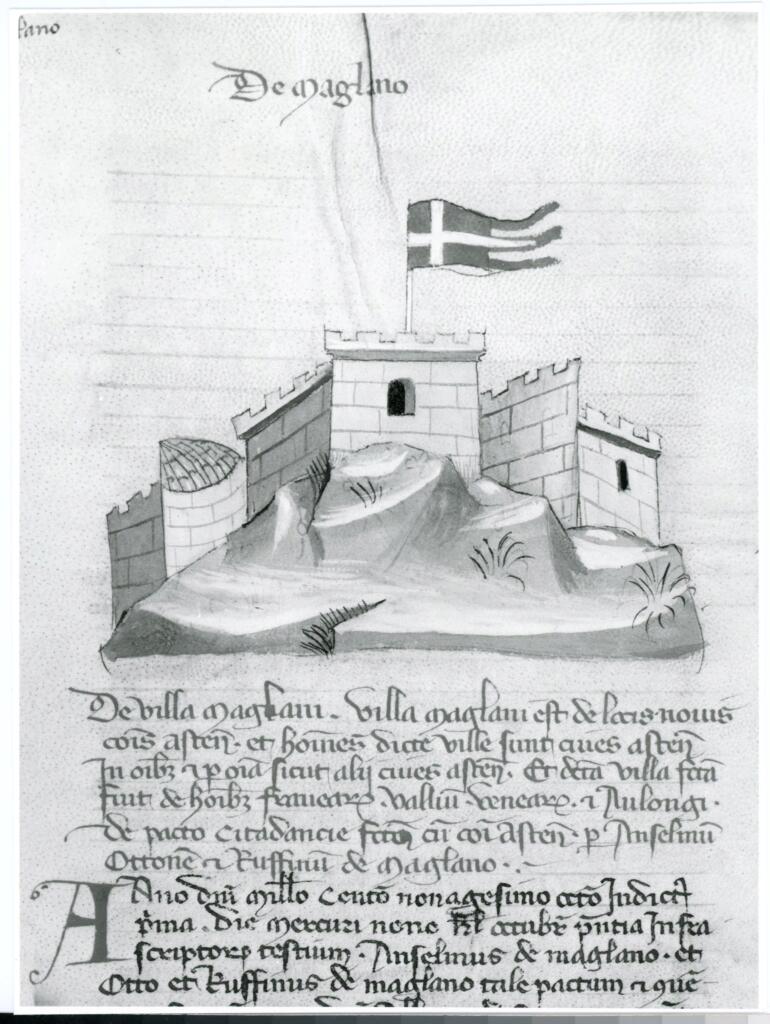 De Maglano
De villa Maglani. villa maglani est de locis nouis
cois asten. et hoines dicte ville sunt ciues asten
In oibz et p oia sicut alij ciues asten. Et dcta villa fcta
fuit de hoibz vallium
de pacto Citadancie fcto cu coi Asten. p Anselmu
Ottone et Ruffinu de Maglano.
Ano dni Millo Cento nonagesimo octo Indict
pma. Die Mercuri nono kl octubr pntia Infra
scriptorz testium. Anselmus de maglano. et
Otto et Ruffinus de maglano tale pactum et